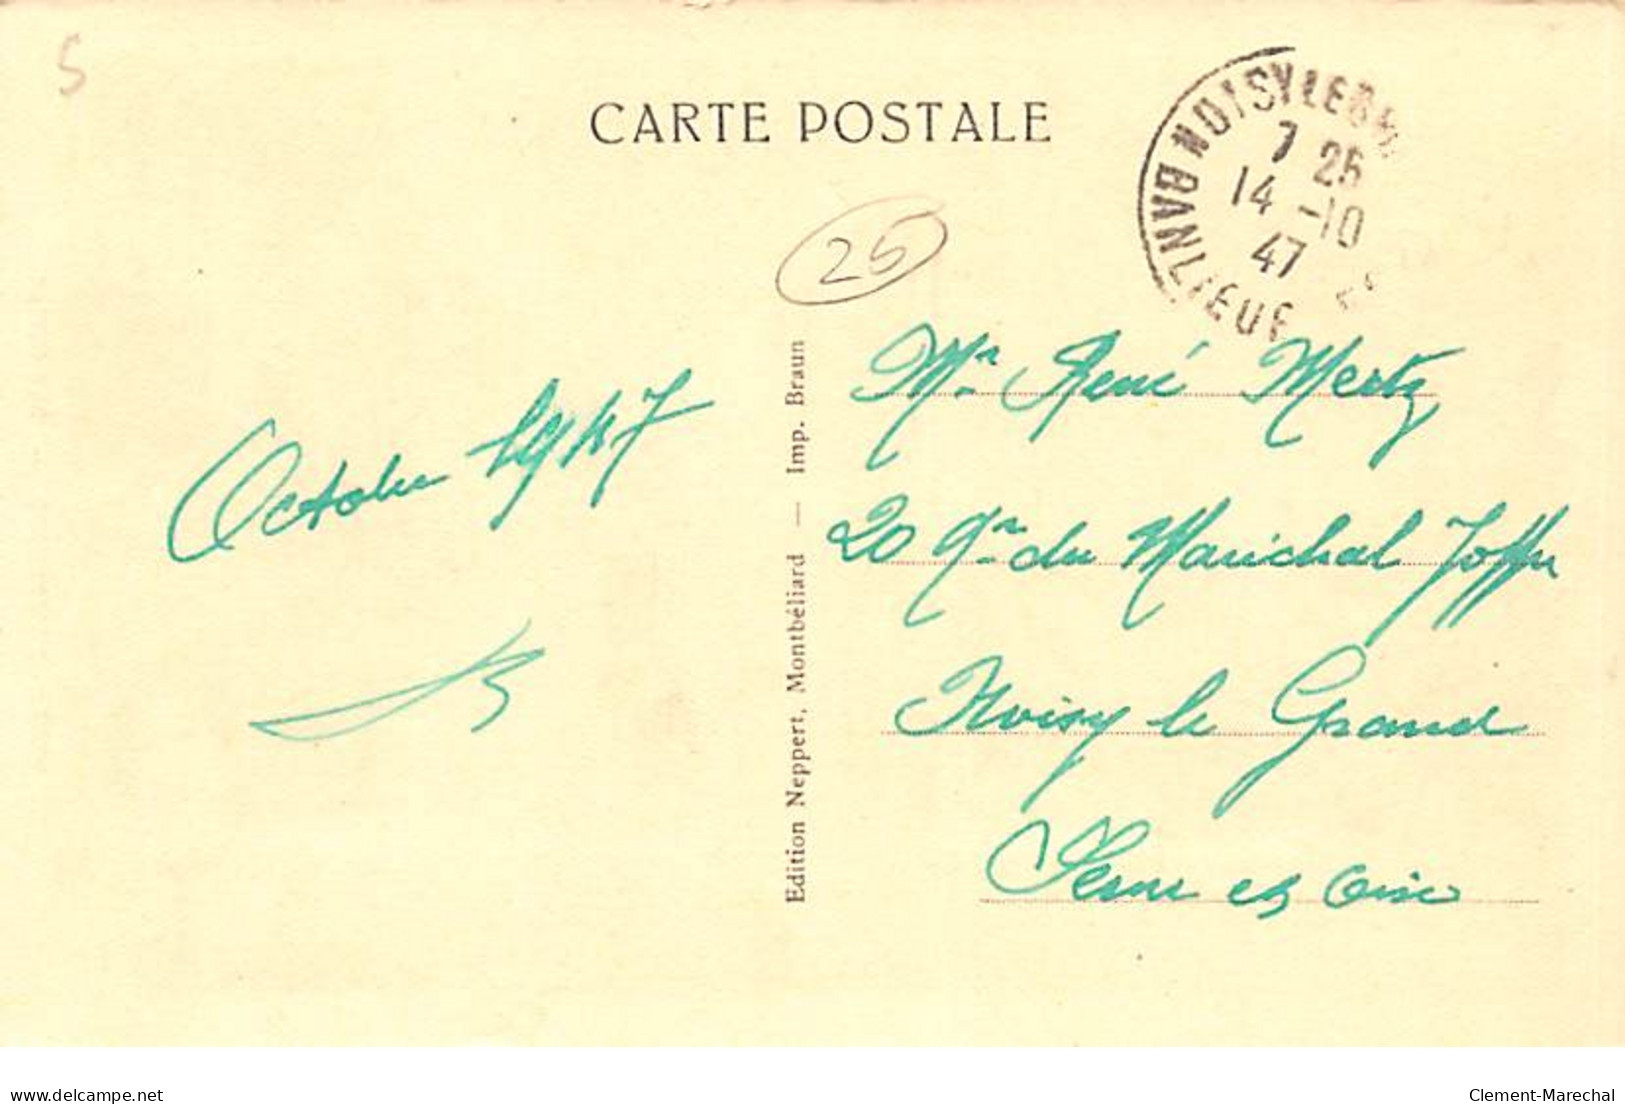 5
CARTE POSTALE
NOISY LE GR
BANLIEUE
7 25
14 -10
47
25
Octobre 1947
Edition Neppert, Montbéliard — Imp. Braun
Mr René Mertz
20 Qr du Maréchal Joffre
Noisy le Grand
Seine et Oise
delcampe.net
Clement-Marechal